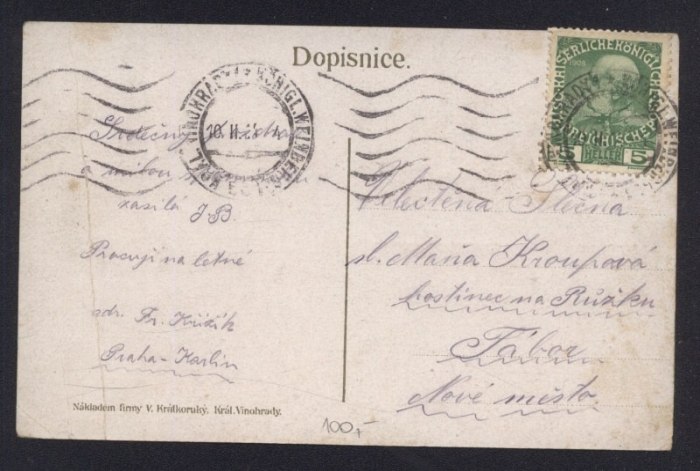 Dopisnice.
1908
KAISERLICHE KÖNIGLICHE
ÖSTERREICHISCHE
HELLER 5
VINOHRADY KÖNIGL. WEINBERGE
10.II.
Srdečný
a milou
zasílá J.B.
Pracuji na letné
adr. Fr. Křižík
Praha-Karlín
Velectěná Slečna
sl. Máňa Kroupová
hostinec na Růžku
Tábor
Nové město
Nákladem firmy V. Krátkoruký. Král. Vinohrady.
100,-